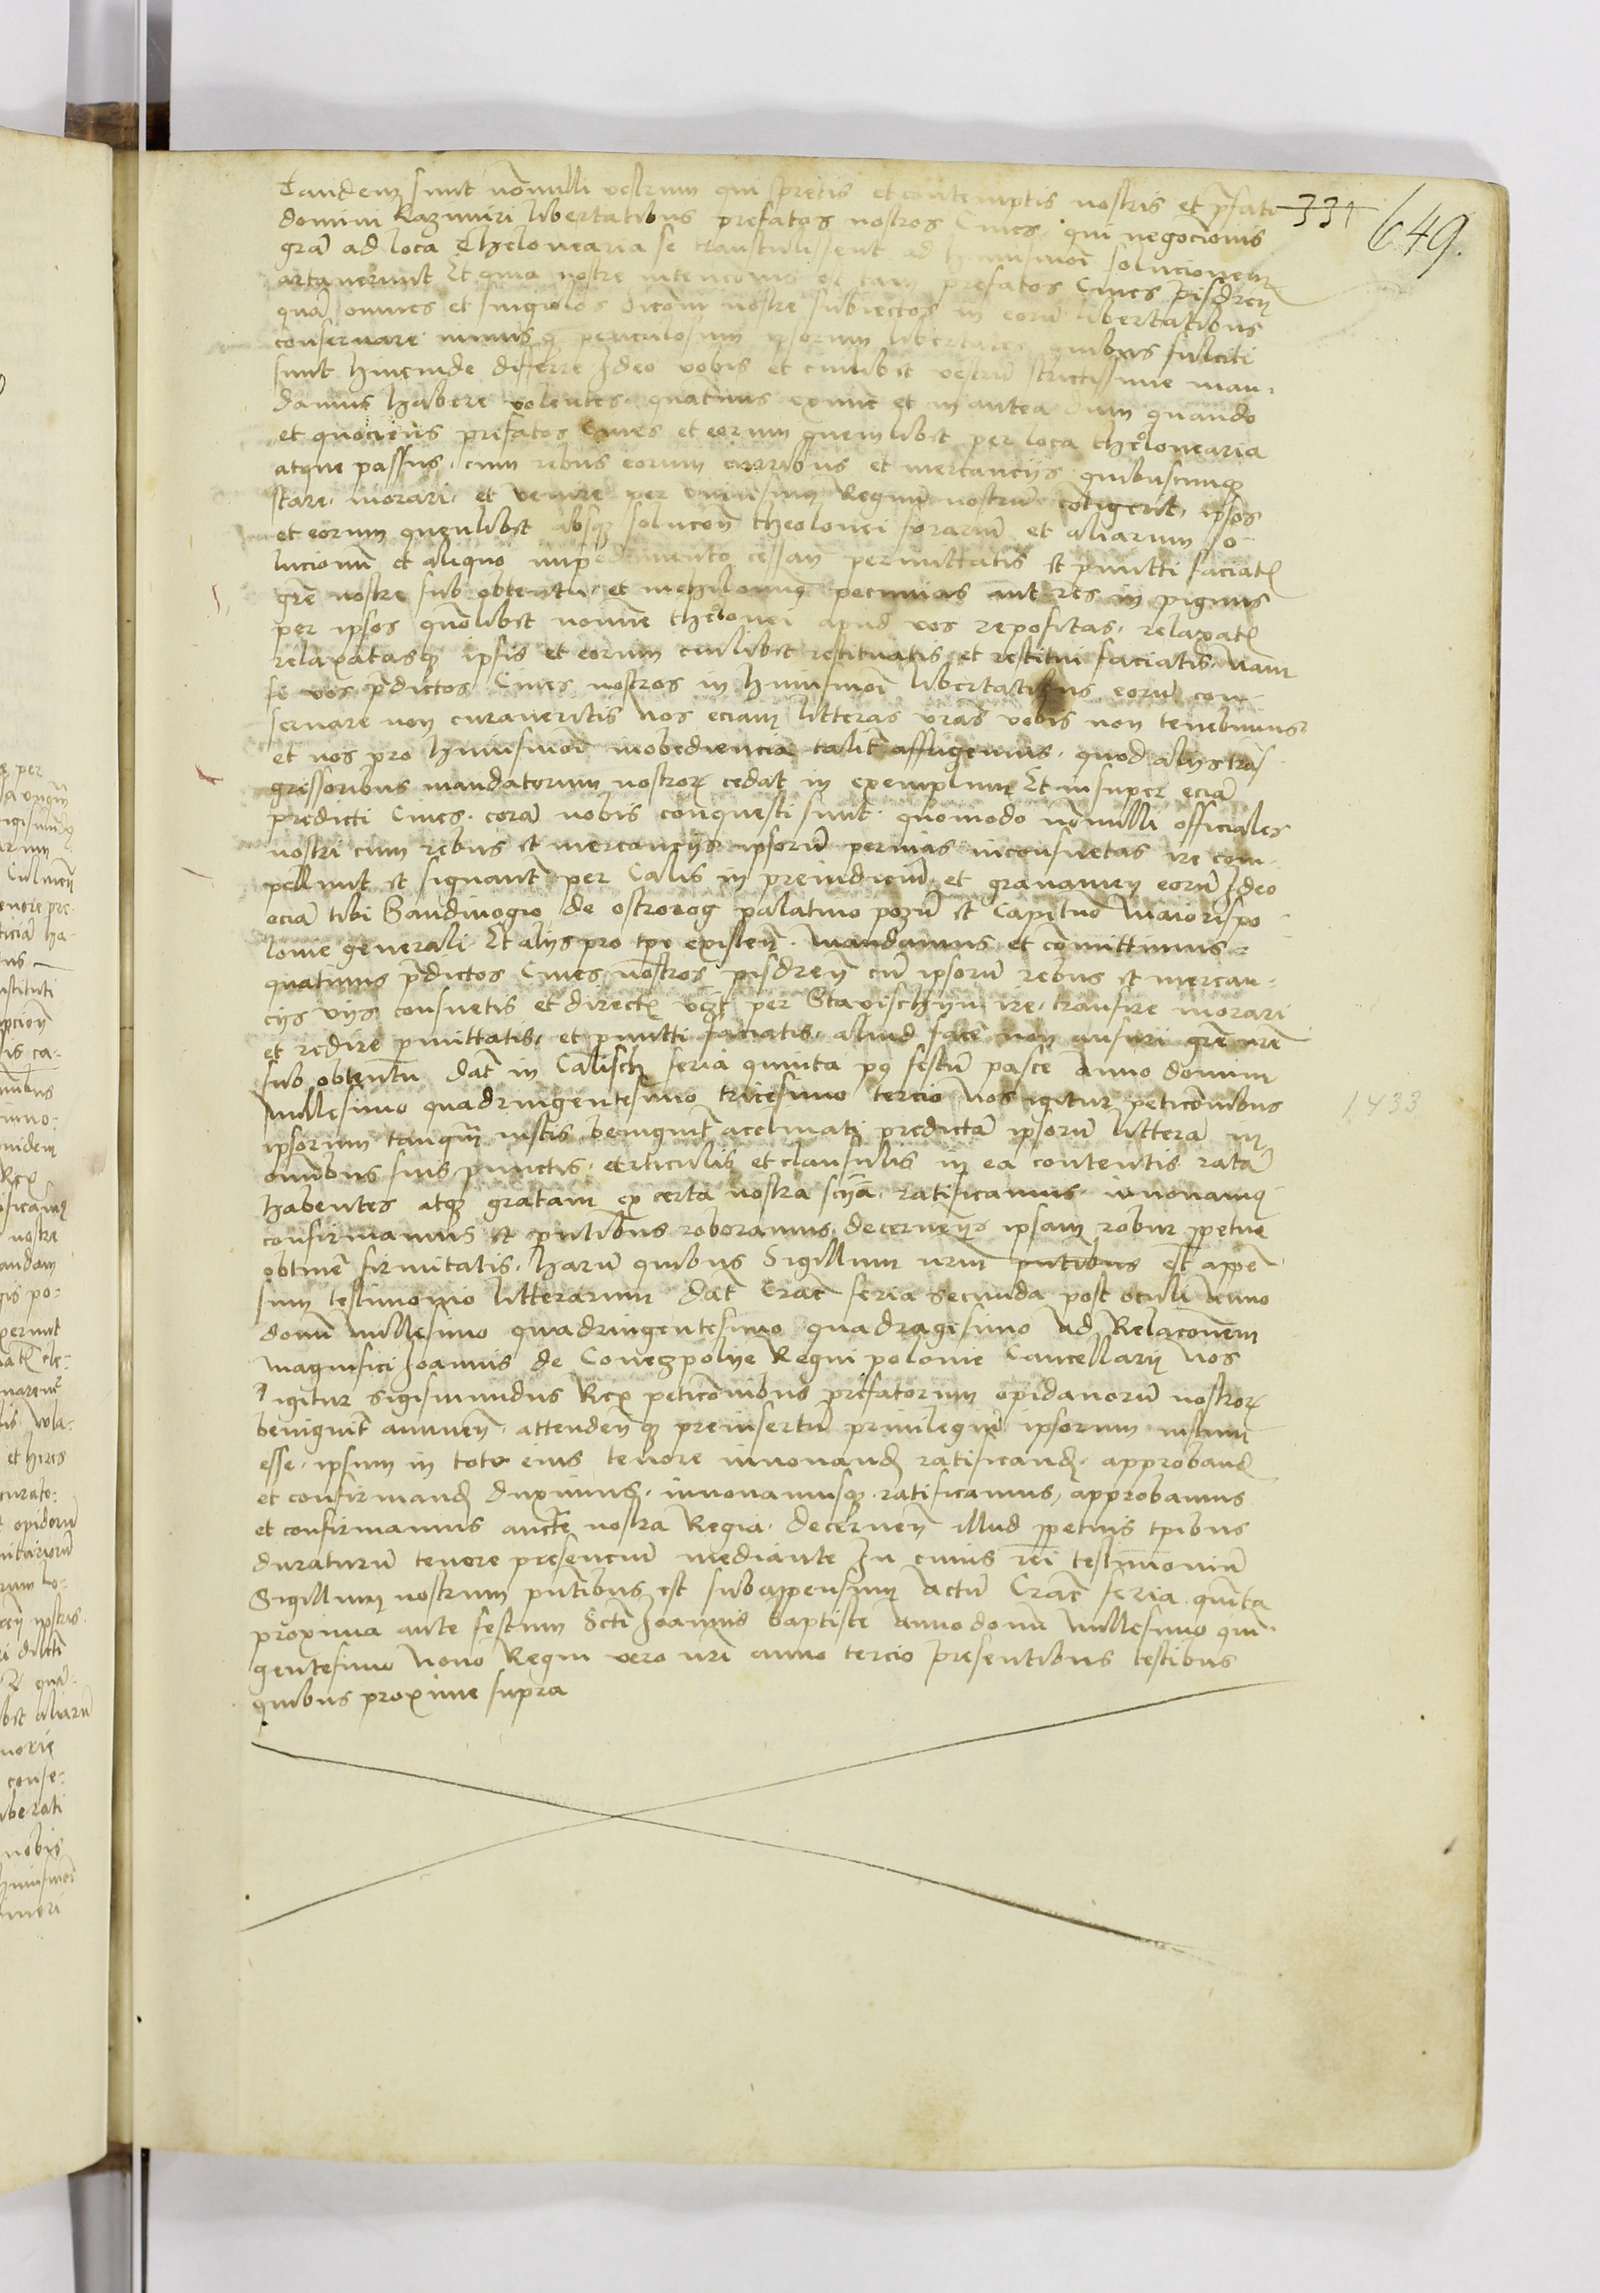 331
649.
Tandem sunt nōnulli vestrum qui spretis et contemptis nostris et p̄fati
domini Kazimiri libertatibus prefatos nostros Ciues, qui negocionis
grā ad loca Thelonearia se transtulissent ad huiusmōi solucionem
artauerunt Et quia nostre intencōnis est tam prefatos Ciues pisdreñ
quā omnes et singulos dicōni nostre subiectos in eorū libertatibus
conseruare periculosum ipsorum libertates quibus fulciti
sunt hincinde differre Ideo vobis et cuilibet vestrū strictissime man-
damus habere volentes quatinus exnunc et in antea dum quando
et quociens prefatos Ciues et eorum quemlibet per loca thelonearia
atque passus, cum rebus eorum curribus et mercancijs quibuscunq̧
stare, morari, et venire per Regnū nostrū cōtigerit, ipsos
et eorum quemlibet absq̧ solucōn theolonei forariū et aliarum so-
lucionū et aliquo impedimento cessañ permittatis et p̄mitti faciatis
grē nostre sub obtentu, et nichilominus pecunias aut res in pignus
per ipsos quōlibet nomine thelonei apud vos repositas, relaxatis
relaxatasq̧ ipsis et eorum cuilibet restituatis et restitui faciatis, nam
si vos p̄dictos Ciues nostros in huiusmōi libertatibus eorū con-
seruare non curaueritis nos eciam litteras vr̄as vobis non tenebimus
et vos pro huiusmōi inobediencia talit̄ affligemus, quod alijs trās
gressoribus mandatorum nostrorᷓ cedat in exemplum Et insuper eciā
predicti Ciues, corā nobis conquesti sunt, quomodo nōnulli officiales
nostri cum rebus et mercancijs ipsorū per vias inconsuetas ire com-
pellunt et signant̄ per Calis in preiudiciū et grauamen eorū Ideo
eciā tibi Sandiuogio de ostrorog palatino pozñ et Capit̄neo Maiorispo-
lonie generali Et alijs pro tp̄e existeñ, mandamus et cōmittimus
quatinus p̄dictos Ciues nostros pisdreñ cū ipsorū rebus et mercan-
cijs vijs consuetis et directis vcȝt per Stavischyn ire, transire morari
et redire p̄mittatis, et p̄mitti faciatis, aliud facē non ausuri grē nrē
sub obtentu Dat̄ in Calisch feria quinta pᷓ festū pasce Anno domini
Millesimo quadringentesimo tricesimo tercio Nos igitur peticōnibus
1433
ipsorum tanquā iustis benignit̄ acclinati predictā ipsorū litterā in
omnibus suis punctis, articulis et clausulis in ea contentis ratā
habentes atq̧ gratam ex certa nostra sciȳā, ratificamus, innouamq̧
confirmamus et p̄ntibus roboramus, decernentes ipsam robur ꝑpetue
obtinē firmitatis, harū quibus Sigillum nrūm p̄ntibus est appē-
sum testimonio litterarum Dat̄ Crac̄ feria secunda post oculi Anno
domī Millesimo quadringentesimo quadragesimo Ad Relacōnem
magnifici Joannis de Conieczpolye Regni polonie Cancellarij Nos
igitur Sigismundus Rex peticōnibus prefatorum opidanorū nostrorᷓ
benignit̄ annueñ, attendeñq̧ preinsertū priuilegiū ipsorum iustum
esse, ipsum in toto eius tenore innouandᷓ ratificandᷓ, approbandᷓ
et confirmandᷓ duximus, innouamusq̧ ratificamus, approbamus
et confirmamus auctē nostra Regia, decerneñ illud ꝑpetuis tp̄ibus
duraturū tenore presenciū mediante In cuius rei testimoniū
Sigillum nostrum p̄ntibus est subappensum Actū Crac̄ feria quīta
proxima ante festum Scti Joannis Baptiste Anno domī Millesimo quin-
gentesimo Nono Regni vero nrī anno tercio Presentibus testibus
quibus proxime supra